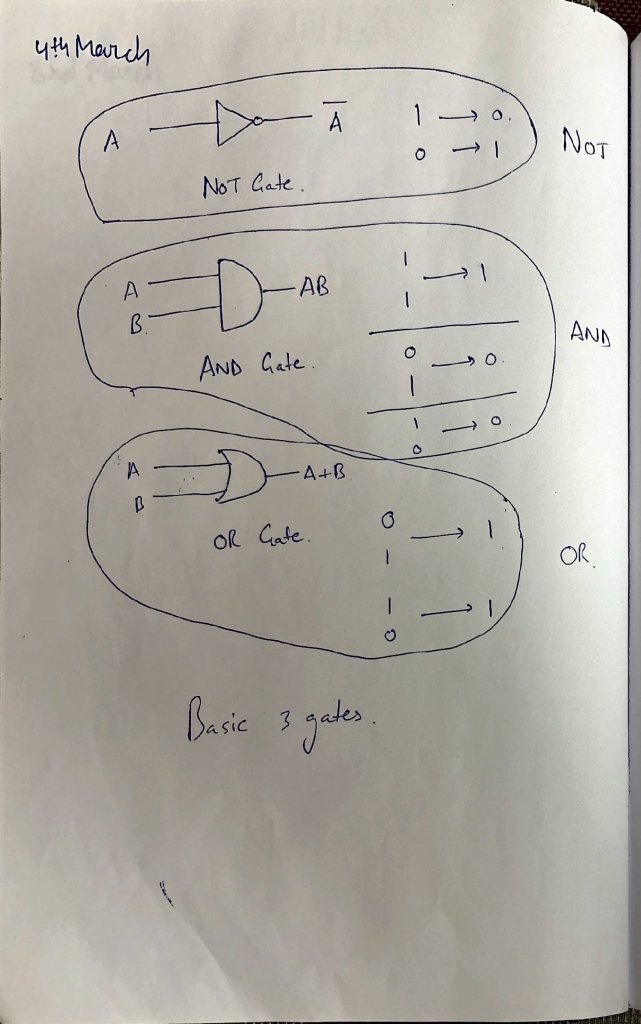 4th March
A Ā 1 → 0.
0 → 1
NOT
NOT Gate.
A
B.
AB
1
1 → 1
AND
AND Gate.
0
1 → 0.
1
0 → 0
A
B
A+B
OR Gate.
0
1 → 1
OR.
1
0 → 1
Basic 3 gates.